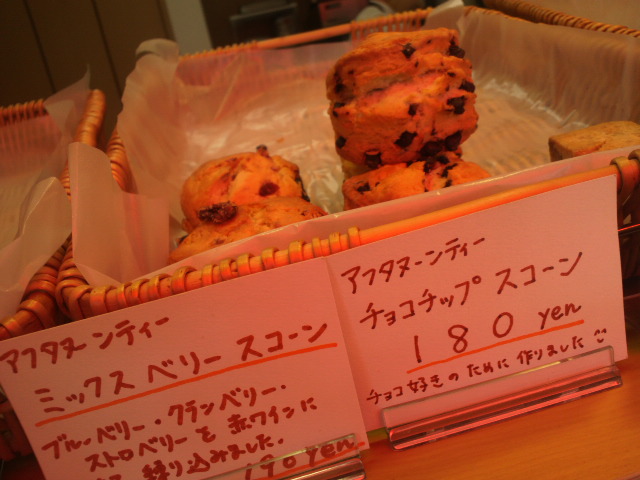 アフタヌーンティー
ミックスベリースコーン
ブルーベリー・クランベリー・
ストロベリーを赤ワインに
練り込みました。
190 yen
アフタヌーンティー
チョコチップスコーン
180 yen
チョコ好きのために作りました